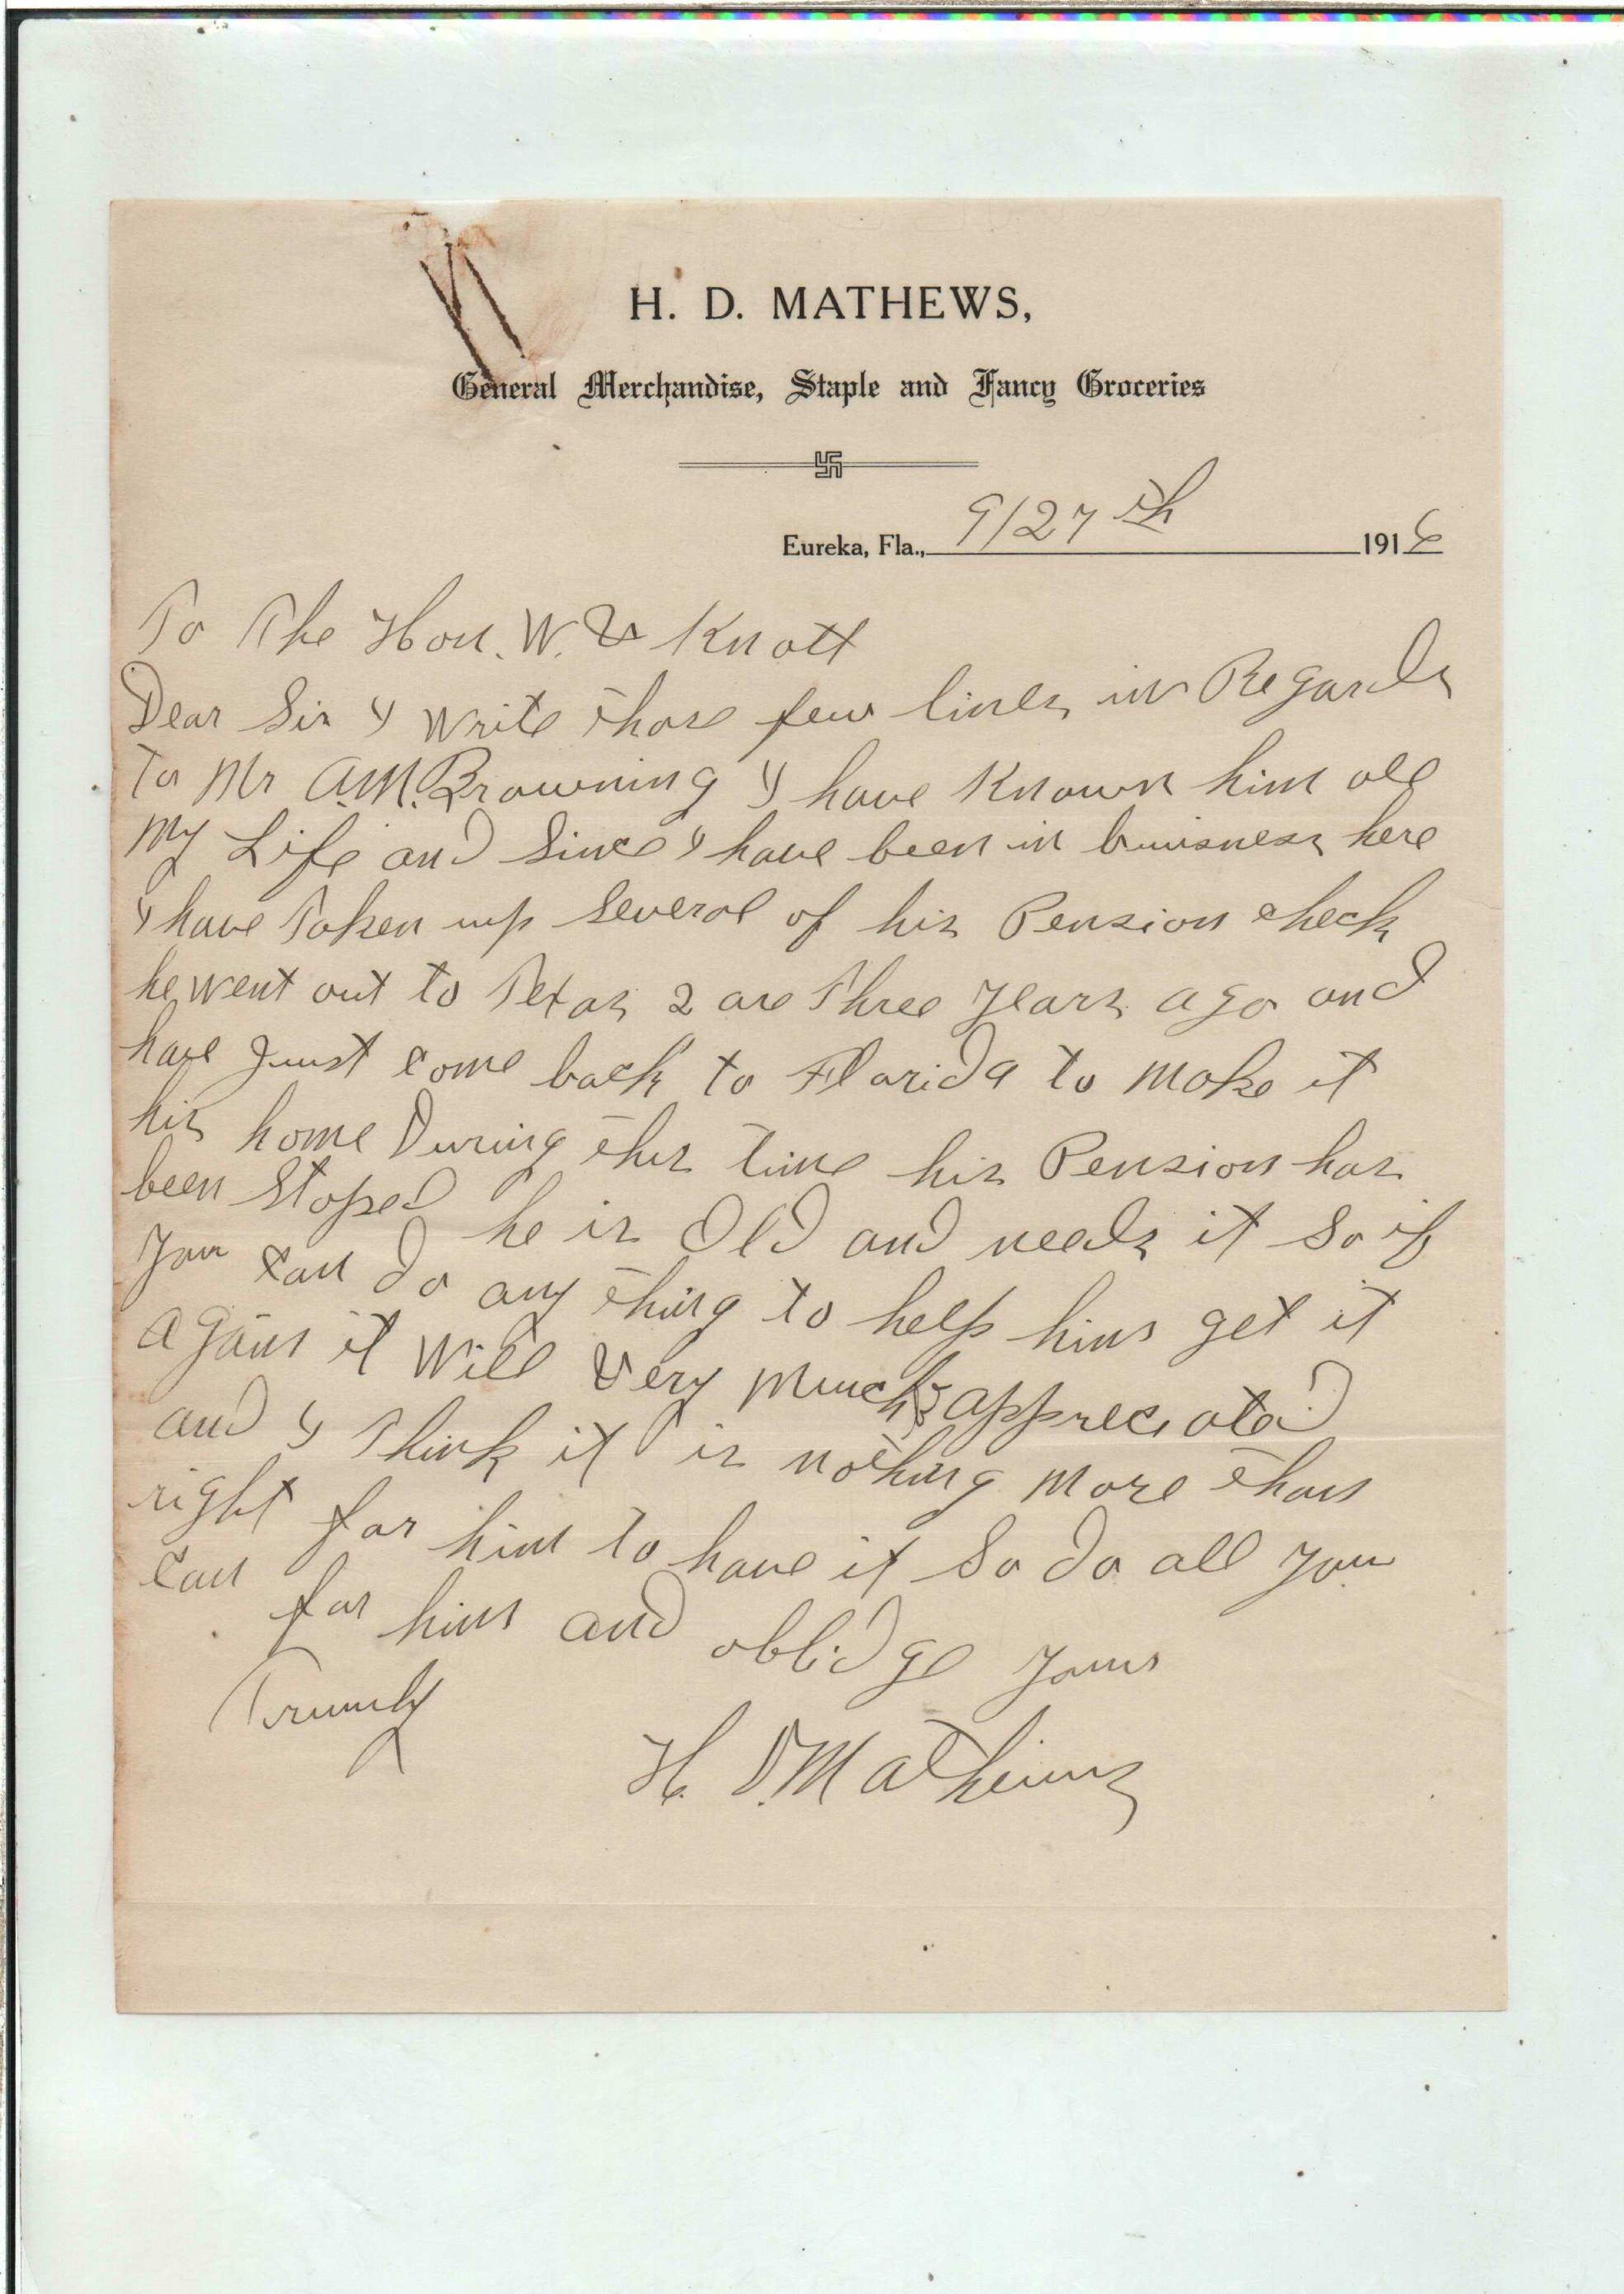 H. D. MATHEWS,
General Merchandise, Staple and Fancy Groceries
Eureka, Fla., 9/27th 1916
To The Hon. W. V Knott
Dear Sir I write thase few lines in Regards
To Mr A.M. Browning I have Known him all
My Life and Since I have been in buisness here
I have Taken up Several of his Pension check
he went out to Texas 2 are Three years ago and
have Just come back to Florida to make it
his home During this Time his Pension has
been Stoped he is Old and needs it So if
you can do any thing to help him get it
again it will very much appreciated
and I Think it is nothing more than
right for him to have it So do all you
can for him and oblidge yours
Truuly
H. D. Mathews